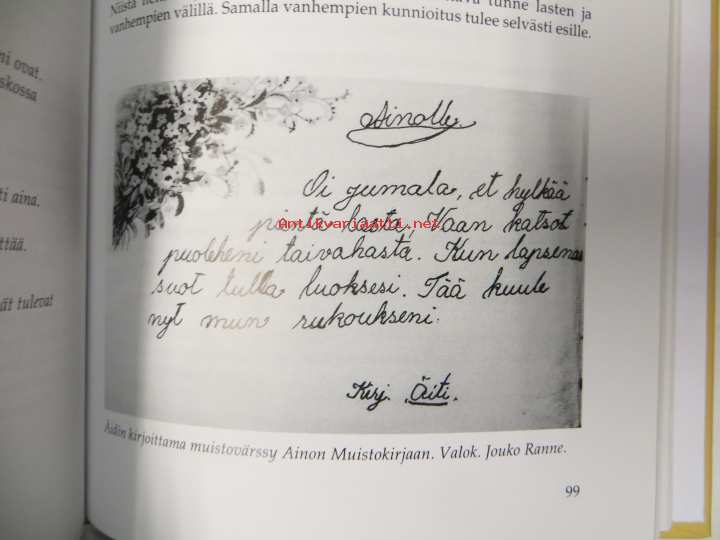 tunne lasten ja
vanhempien välillä. Samalla vanhempien kunnioitus tulee selvästi esille.
ni ovat.
skossa
ti aina.
ttää.
ät tulevat
Ainolle.
Oi jumala, et hylkää
pientä lasta, Vaan katsot
puoleheni taivahasta. Kun lapsena
suot tulla luoksesi. Tää kuule
nyt mun rukoukseni.
Kirj. Äiti.
Antikvariaatti.net
Äidin kirjoittama muistovärssy Ainon Muistokirjaan. Valok. Jouko Ranne.
99